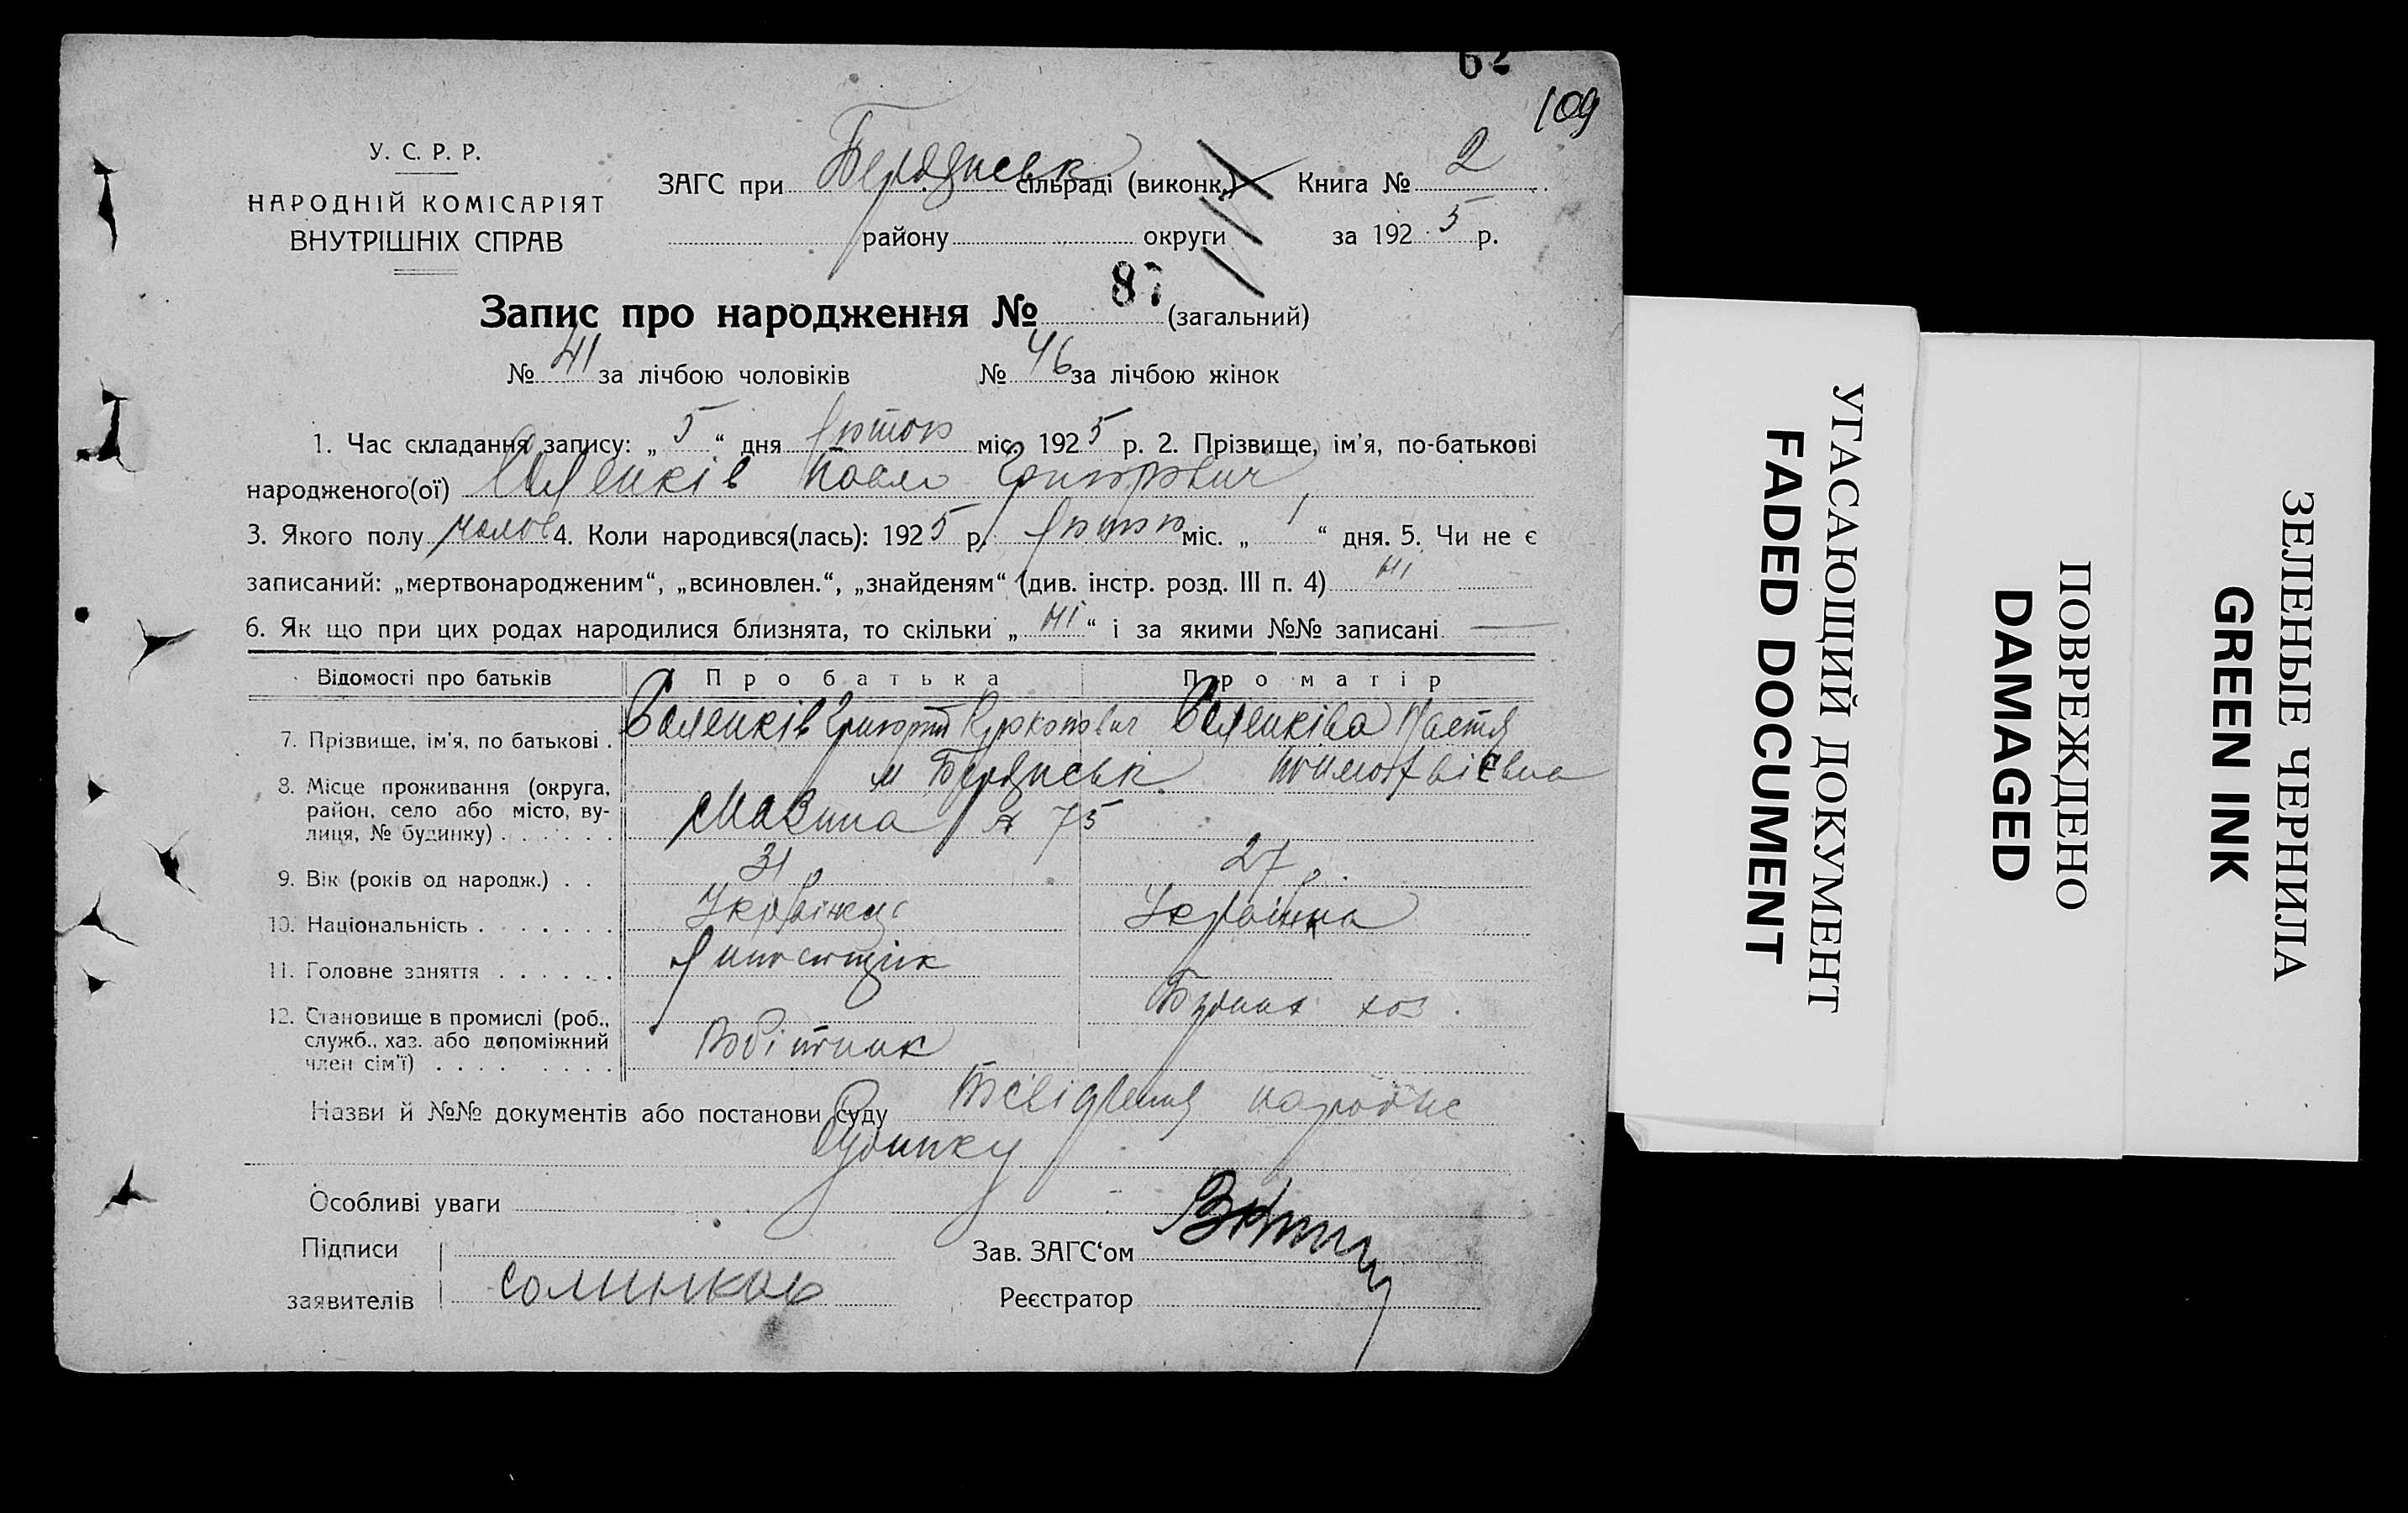 109
У. С. Р. Р.
НАРОДНІЙ КОМІСАРІЯТ
ВНУТРІШНІХ СПРАВ
ЗАГС при Бердянськ сільраді (виконк.) Книга № 2
району округи за 1925 р.
Запис про народження № 87 (загальний)
№ 41 за лічбою чоловіків № 46 за лічбою жінок
1. Час складання запису: „ 5 “ дня міс. 1925 р. 2. Прізвище, ім’я, по-батькові
народженого(ої) Павло Григорович
3. Якого полу чолов 4. Коли народився(лась): 1925 р. міс. „ “ дня. 5. Чи не є
записаний: „мертвонародженим“, „всиновлен.“, „знайденям“ (див. інстр. розд. III п. 4) ні
6. Як що при цих родах народилися близнята, то скільки „ ні “ і за якими №№ записані —
Відомості про батьків Про батька Про матір
7. Прізвище, ім’я, по батькові . Соленків Григорій Соленківа Настя
8. Місце проживання (округа, район, село або місто, вулиця, № будинку) . . . . . . м Бердянськ
№ 75
9. Вік (років од народж.) . . 31 р 27 р.
10. Національність . . . . . . . Українець Українка
11. Головне заняття . . . . . .
12. Становище в промислі (роб., служб., хаз. або допоміжний член сім’ї) . . . . . . . . Робітник хоз.
Назви й №№ документів або постанови суду
будинку
Особливі уваги
Підписи Зав. ЗАГС‘ом
заявителів Реєстратор
УГАСАЮЩИЙ ДОКУМЕНТ
FADED DOCUMENT
ПОВРЕЖДЕНО
DAMAGED
ЗЕЛЕНЫЕ ЧЕРНИЛА
GREEN INK